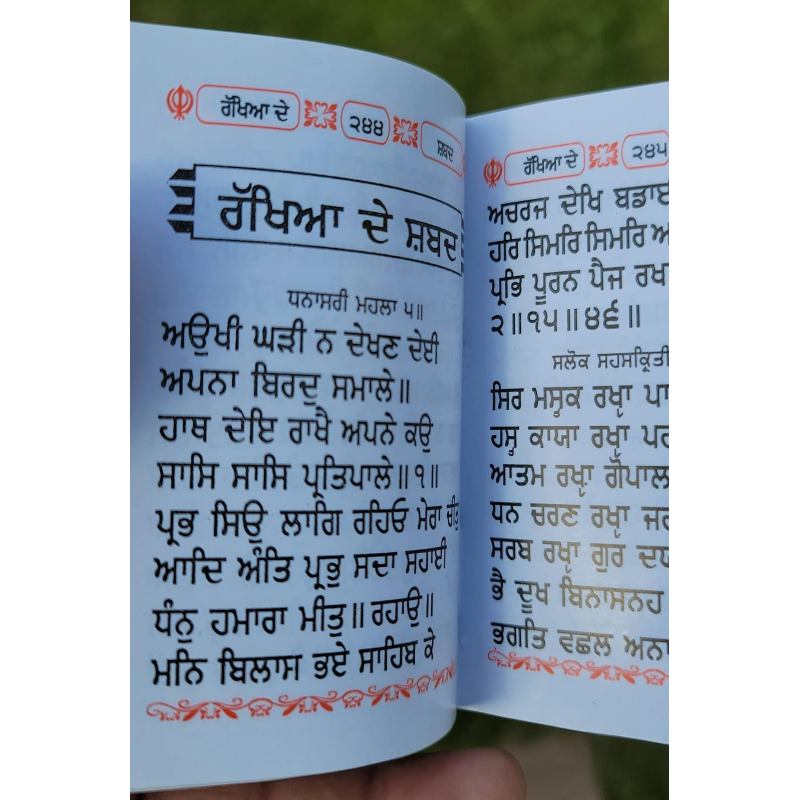 ਰੱਖਿਆ ਦੇ ੨੪੪ ਸ਼ਬਦ
ਰੱਖਿਆ ਦੇ ਸ਼ਬਦ
ਧਨਾਸਰੀ ਮਹਲਾ ੫॥
ਅਉਖੀ ਘੜੀ ਨ ਦੇਖਣ ਦੇਈ
ਅਪਨਾ ਬਿਰਦੁ ਸਮਾਲੇ॥
ਹਾਥ ਦੇਇ ਰਾਖੈ ਅਪਨੇ ਕਉ
ਸਾਸਿ ਸਾਸਿ ਪ੍ਰਤਿਪਾਲੇ॥੧॥
ਪ੍ਰਭ ਸਿਉ ਲਾਗਿ ਰਹਿਓ ਮੇਰਾ ਚੀਤੁ
ਆਦਿ ਅੰਤਿ ਪ੍ਰਭੁ ਸਦਾ ਸਹਾਈ
ਧੰਨੁ ਹਮਾਰਾ ਮੀਤੁ॥ਰਹਾਉ॥
ਮਨਿ ਬਿਲਾਸ ਭਏ ਸਾਹਿਬ ਕੇ
ਰੱਖਿਆ ਦੇ ੨੪੫
ਅਚਰਜ ਦੇਖਿ ਬਡਾਈ
ਹਰਿ ਸਿਮਰਿ ਸਿਮਰਿ
ਪ੍ਰਭਿ ਪੂਰਨ ਪੈਜ ਰਖਾ
੨॥੧੫॥੪੬॥
ਸਲੋਕ ਸਹਸਕ੍ਰਿਤੀ
ਸਿਰ ਮਸ੍ਤਕ ਰਖ੍ਯਾ ਪਾ
ਹਸ੍ਤ ਕਾਯਾ ਰਖ੍ਯਾ ਪਰ
ਆਤਮ ਰਖ੍ਯਾ ਗੋਪਾਲ
ਧਨ ਚਰਣ ਰਖ੍ਯਾ ਜਗ
ਸਰਬ ਰਖ੍ਯਾ ਗੁਰ ਦਯ
ਭੈ ਦੂਖ ਬਿਨਾਸਨਹ
ਭਗਤਿ ਵਛਲ ਅਨਾ